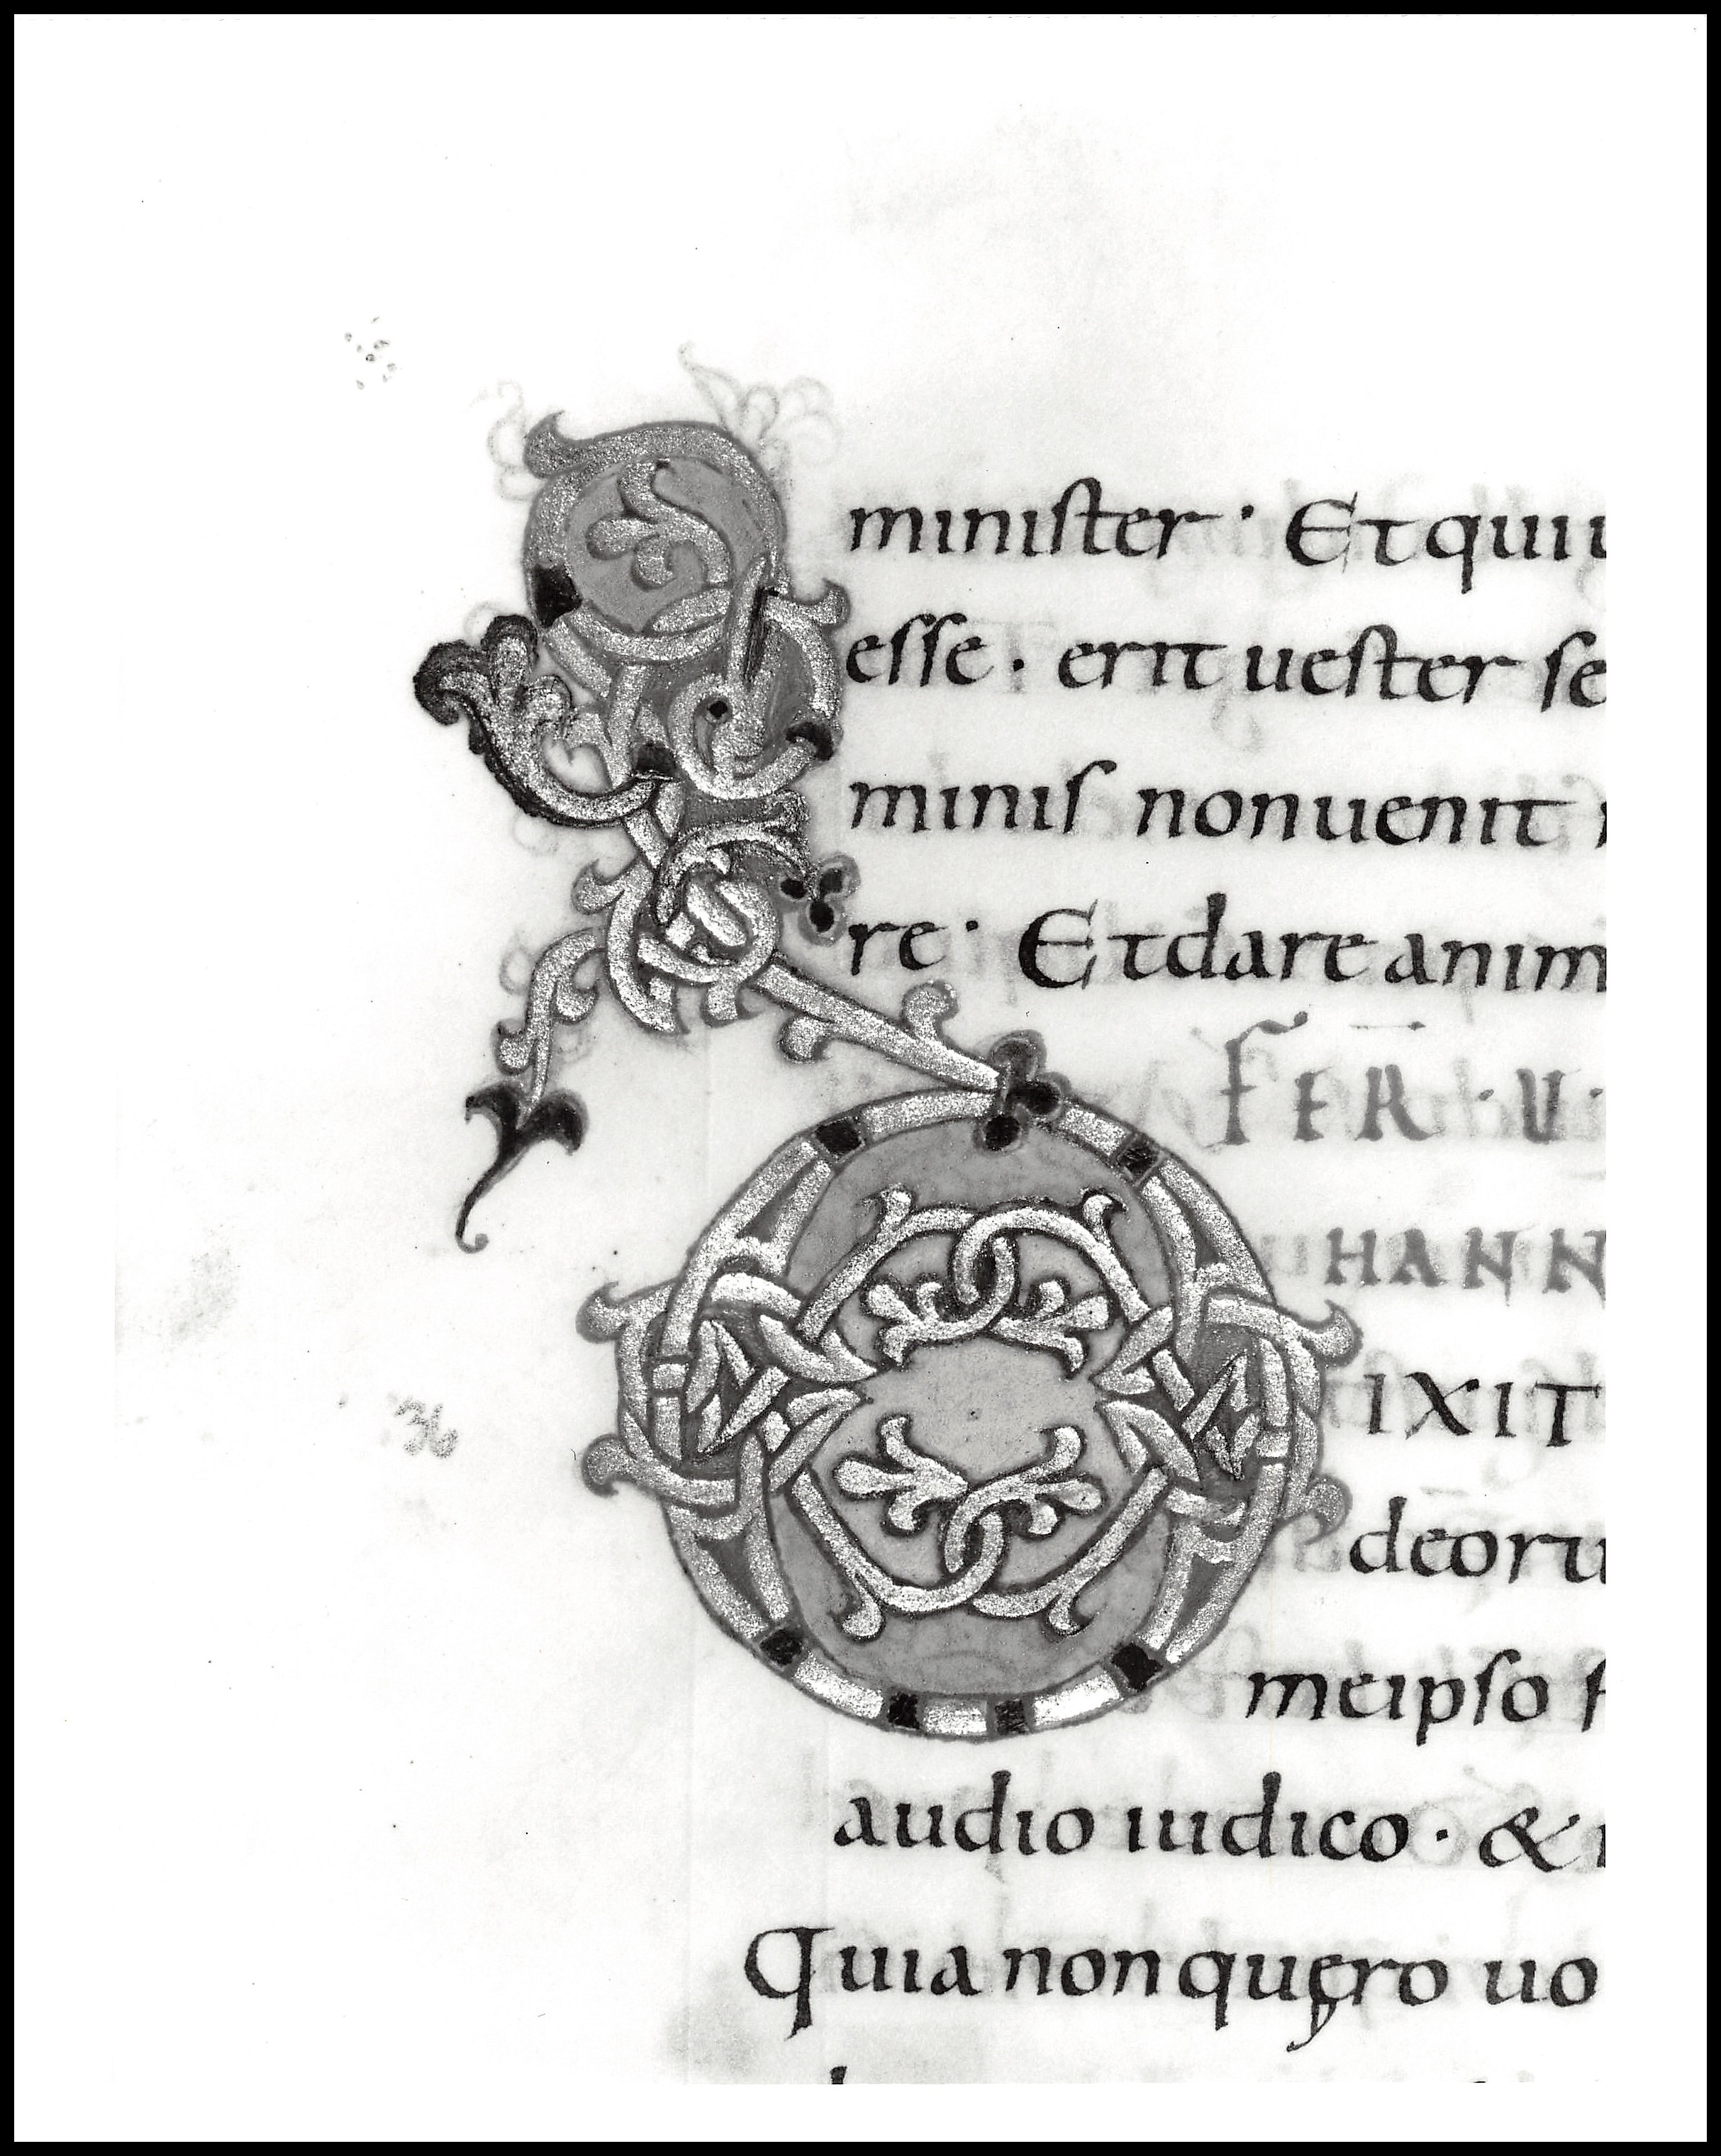 minister · Et qui u
esse · erit uester se
minis non uenit
re · Et dare anim
FER · V ·
HANN
DIXIT
deoru
meipso f
36
audio iudico · &
Quia non quęro uo